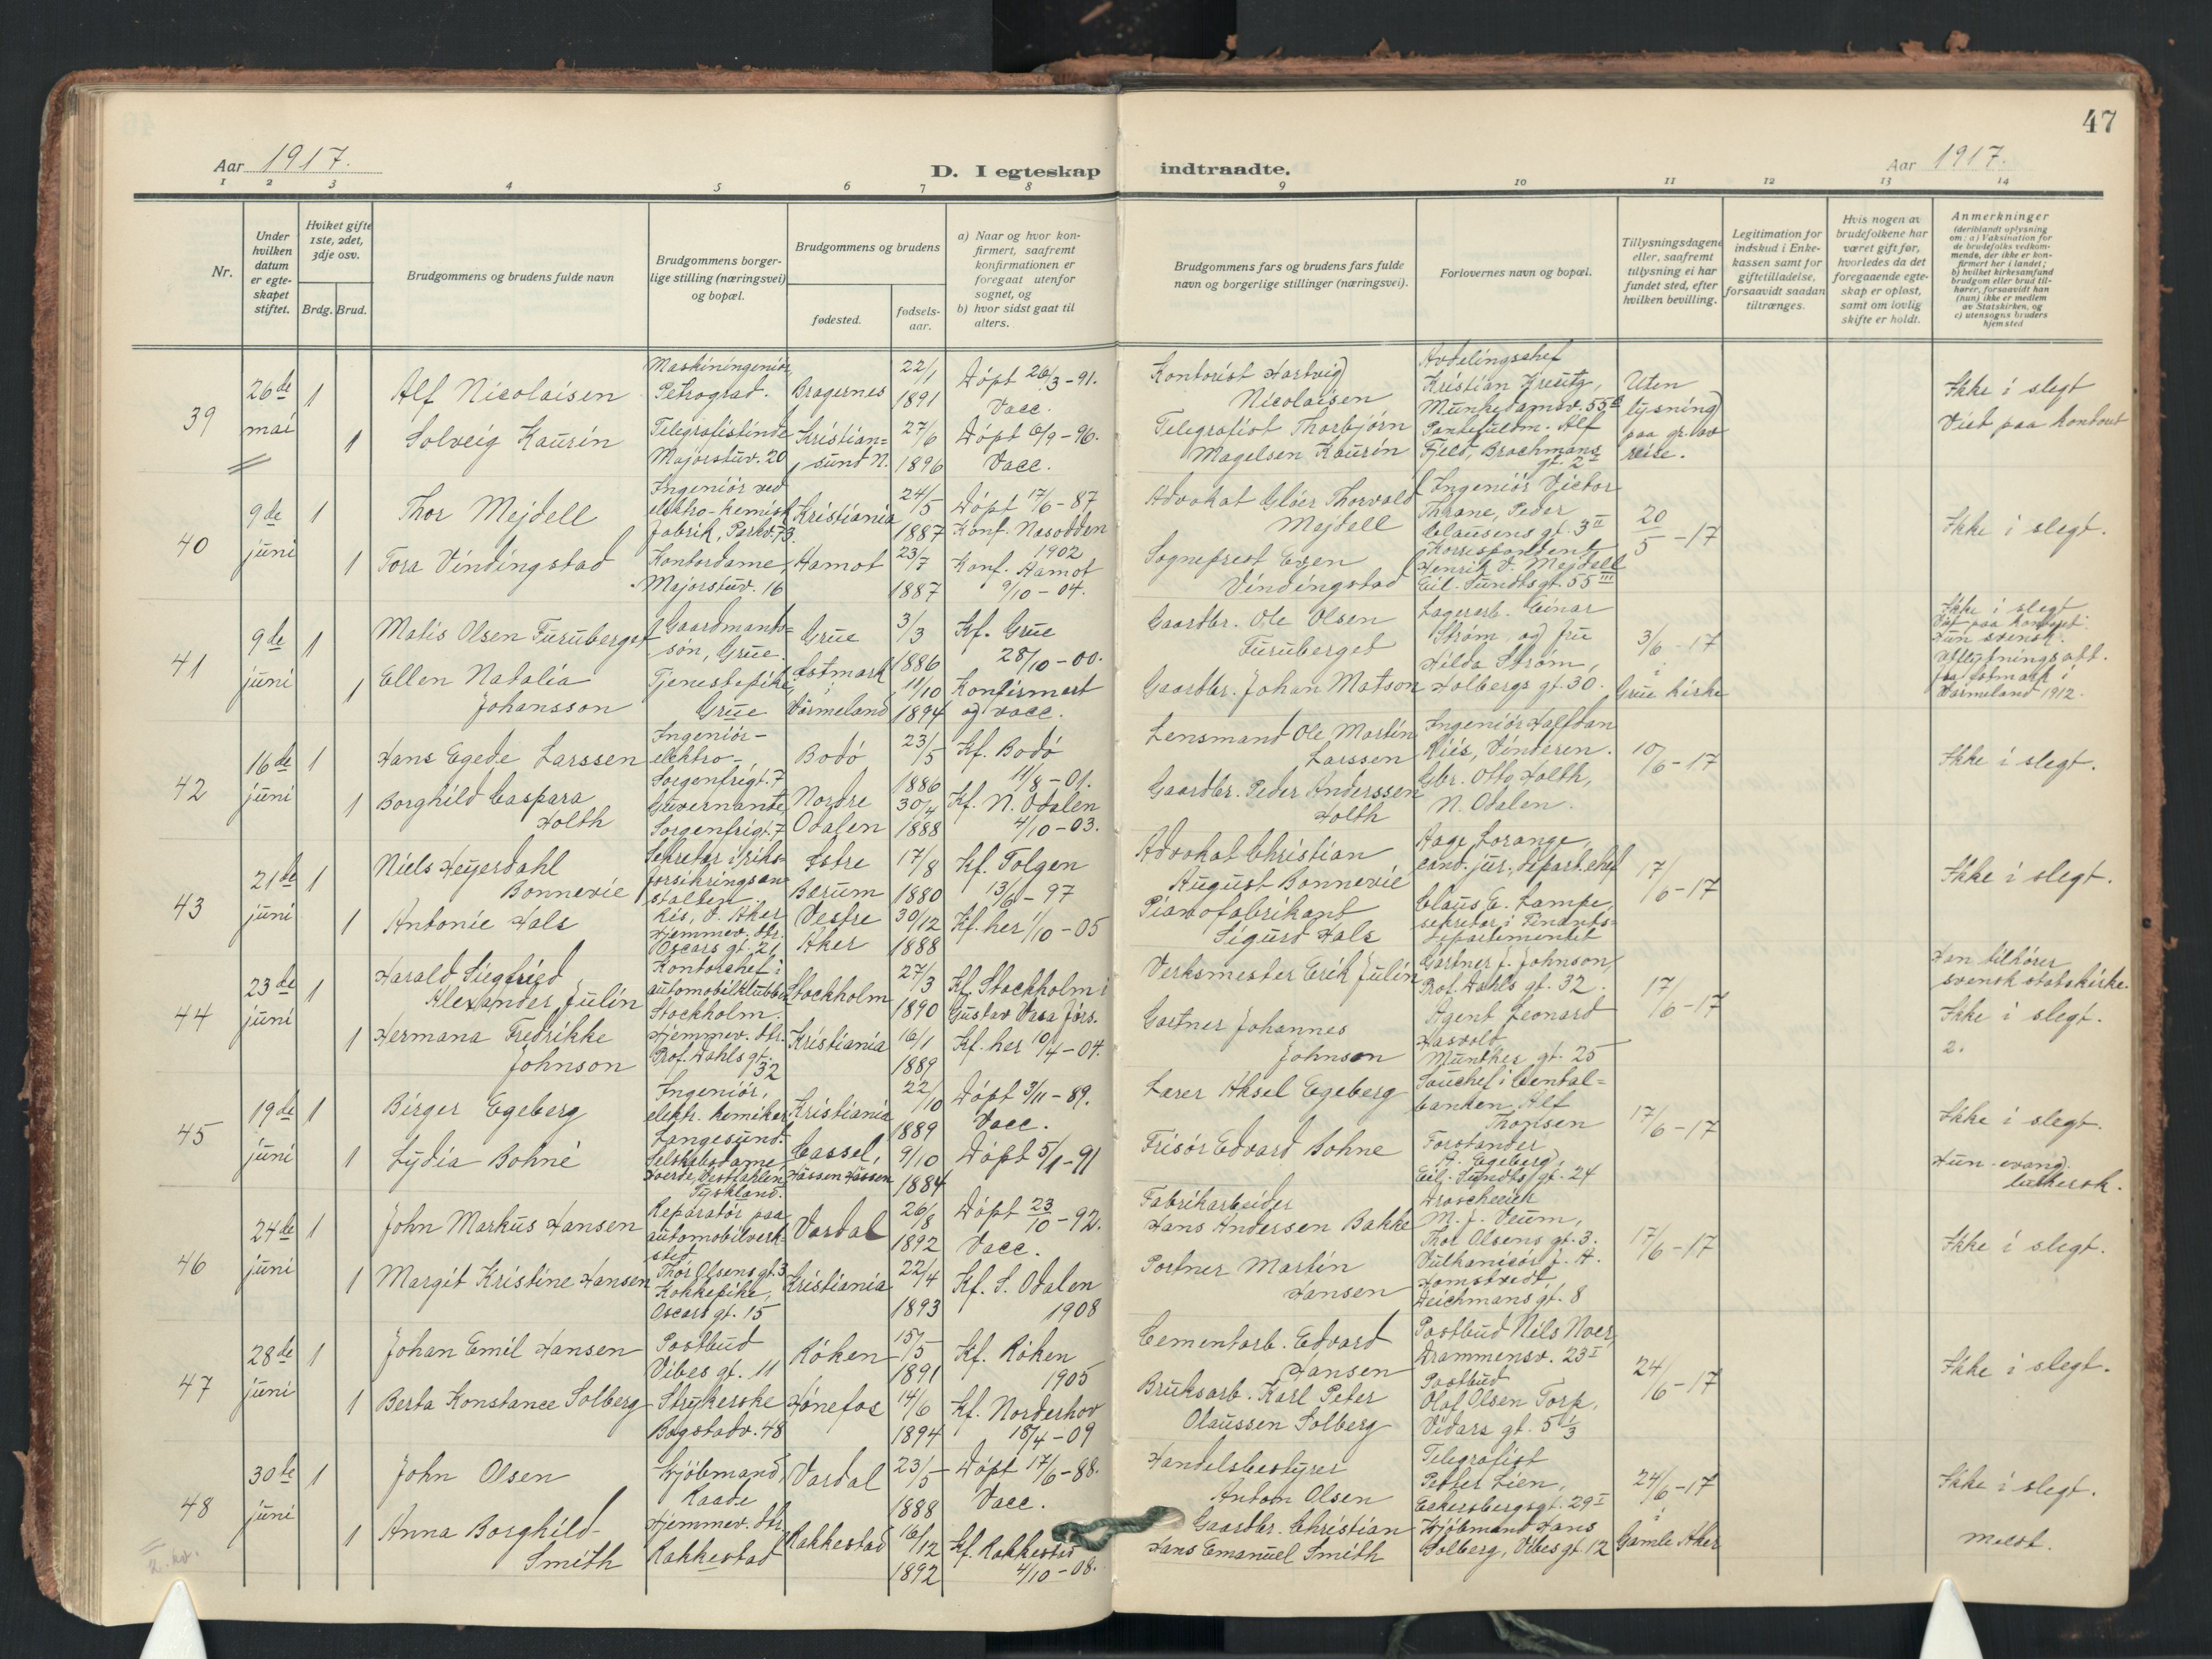 47
Aar 1917.
D. I egteskap indtraadte.
Aar 1917.
1 2 3 4 5 6 7 8 9 10 11 12 13 14
Nr.
Under
hvilken
datum
er egte-
skapet
stiftet.
Hviket gifte
1ste, 2det,
3dje osv.
Brdg. Brud.
Brudgommens og brudens fulde navn
Brudgommens borger-
lige stilling (næringsvei)
og bopæl.
Brudgommens og brudens
fødested.
fødsels-
aar.
a) Naar og hvor kon-
firmert, saafremt
konfirmationen er
foregaat utenfor
sognet, og
b) hvor sidst gaat til
alters.
Brudgommens fars og brudens fars fulde
navn og borgerlige stillinger (næringsvei).
Forlovernes navn og bopæl.
Tillysningsdagene
eller, saafremt
tillysning ei har
fundet sted, efter
hvilken bevilling.
Legitimation for
indskud i Enke-
kassen samt for
giftetilladelse,
forsaavidt saadan
tiltrænges.
Hvis nogen av
brudefolkene har
været gift før,
hvorledes da det
foregaaende egte-
skap er opløst,
samt om lovlig
skifte er holdt.
Anmerkninger
(deriblandt oplysning
om: a) Vaksination for
de brudefolks vedkom-
mende, der ikke er kon-
firmert her i landet;
b) hvilket kirkesamfund
brudgom eller brud til-
hører, forsaavidt han
(hun) ikke er medlem
av Statskirken, og
c) utensogns bruders
hjemsted
39
26de
mai
1
Alf Nicolaisen
Maskiningeniör,
Petrograd.
Bragernes
22/1
1891
Döpt 26/3-91.
Vacc.
Kontorist Hartvig
Nicolaisen
1
Solveig Kaurin
Telegrafistinde
Majorstuv. 20
Kristian=
sund N.
27/6
1896
Döpt 6/9-96.
Vacc.
Telegrafist Thorbjörn
Magelsen Kaurin
Avdelingschef
Kristian Kreutz,
Munkedamsv. 55B
Pantefuldm. Alf
Fjeld, Brochmans
gt. 2
Uten
lysning
paa gr. av
reise.
Ikke i slegt
Viet paa kontoret
40
9de
juni
1
Thor Mejdell
Ingeniör ved
elektro-kemisk
fabrik, Parkv. 73.
Kristiania
24/5
1887
Döpt 17/6-87.
Konf. Nesodden
1902
Advokat Glöer Thorvald
Mejdell
1
Tora Vindingstad
Kontordame,
Majorstuv. 16
Aamot
23/7
1887
Konf. Aamot
9/10-04.
Sogneprest Even
Vindingstad
Ingeniör Victor
Thrane, Peder
Clausens gt. 3II
Korrespondent
Henrik V. Mejdell
Eil. Sundtsgt. 55III
20/5-17
Ikke i slegt.
41
9de
juni
1
Matis Olsen Furuberget
Gaardmands=
sön, Grue.
Grue
3/3
1886
Kf. Grue
28/10-00.
Gaardbr. Ole Olsen
Furuberget
1
Ellen Natalia
Johansson
Tjenestepike,
Grue
Östmark
i
Värmeland
11/10
1894
Konfirmert
og vacc.
Gaardbr. Johan Matson
Lagerarb. Einar
Ström og fru
Hilda Ström,
Holbergs gt. 30.
3/6-17
i
Grue kirke
Ikke i slegt
Viet paa kontoret.
Hun svensk.
Utflytningsatt.
fra Östmark i
Värmeland 1912.
42
16de
juni
1
Hans Egede Larssen
Ingeniör-
elektro-
Sorgenfrigt. 7
Bodö
23/5
1886
Kf. Bodö
11/8-01.
Lensmand Ole Martin
Larssen
1
Borghild Caspara
Holth
Guvernante,
Sorgenfrigt. 7
Nordre
Odalen
30/4
1888
Kf. N. Odalen
4/10-03.
Gaardbr. Peder Anderssen
Holth
Ingeniör Halfdan
Riis, Vinderen.
Gbr. Otto Holth,
N. Odalen.
10/6-17
Ikke i slegt.
43
21de
juni
1
Niels Heyerdahl
Bonnevie
Sekretær i riks-
forsikringsan-
stalten.
Ris, V. Aker
Østre
Bærum
17/8
1880
Kf. Tolgen
13/6-97
Advokat Christian
August Bonnevie
1
Antonie Hals
Hjemmev. dtr.
Oscars gt. 21
Vestre
Aker
30/12
1888
Kf. her 1/10-05
Pianofabrikant
Sigurd Hals
Aage Lorange
cand. jur., depart.chef
Claus E. Lampe,
sekretær i Finants-
departementet
17/6-17
Ikke i slegt.
44
23de
juni
1
Harald Siegfried
Alexander Julin
Kontorchef i
automobilklubben
Stockholm.
Stockholm
27/3
1890
Kf. Stockholm i
Gustav Vasa förs.
Verksmester Erik Julin
1
Hermana Fredrikke
Johnson
Hjemmev. dtr.
Prof. Dahls gt.
32
Kristiania
16/1
1889
Kf. her 10/4-04.
Gartner Johannes
Johnson
Gartner J. Johnson,
Prof. Dahls gt. 32.
Agent Leonard
Hasvold
Munthes gt. 25
17/6-17
Han tilhörer
svensk statskirke.
Ikke i slegt.
2.
45
19de
juni
1
Birger Egeberg
Ingeniör,
elektr. kemiker.
Langesund.
Kristiania
22/10
1889
Döpt 3/11-89.
Vacc.
Lærer Aksel Egeberg
1
Lydia Bohné
Selskabsdame,
Voerde, Vestfahlen
Tyskland.
Cassel,
Hessen Hessen
9/10
1884
Döpt 5/1-91
Frisör Edvard Bohne
Souchef i Cental=
banken Alf
Thomsen
Forstander
A. Egeberg,
Eil. Sundts gt. 24
17/6-17
Ikke i slegt.
Hun evang.
luthersk.
46
24de
juni
1
John Markus Hansen
Reparatör paa
automobilverk-
sted
Thor Olsens gt. 3
Vardal
26/8
1892
Döpt 23/10-92.
Vacc.
Fabrikarbeider
Hans Andersen Bakke
1
Margit Kristine Hansen
Kokkepike,
Oscars gt. 15
Kristiania
22/4
1893
Kf. S. Odalen
1908
Portner Martin
Hansen
M. J. Veum,
Thor Olsens gt. 3.
Vulkanisör J. A.
Homstvedt,
Deichmans gt. 8
17/6-17
Ikke i slegt.
47
28de
juni
1
Johan Emil Hansen
Postbud
Vibes gt. 11
Röken
15/5
1891
Kf. Röken
1905
Cementarb. Edvard
Hansen
1
Berta Konstance Solberg
Strykerske
Bogstadv. 48
Hönefos
14/6
1894
Kf. Norderhov
18/4-09
Bruksarb. Karl Peter
Olaussen Solberg
Postbud Nils Noer,
Drammensv. 23I
Postbud
Olaf Olsen Torp,
Vidars gt. 5 I/3
24/6-17
Ikke i slegt.
48
30te
juni
1
John Olsen
Kjöbmand,
Raade
Vardal
23/5
1888
Döpt 17/6-88.
Vacc.
Handelsbestyrer
Anton Olsen
1
Anna Borghild
Smith
Hjemmev. dtr.
Rakkestad
Rakkestad
16/12
1892
Kf. Rakkestad
4/10-08.
Gaardbr. Christian
Hans Emanuel Smith
Telegrafist
Petter Lien,
Eckersbergsgt. 29I
Kjöbmand Hans
Solberg, Vibes gt 12
24/6-17
i
Gamle Aker
Ikke i slegt.
Meldt.
2. kv.